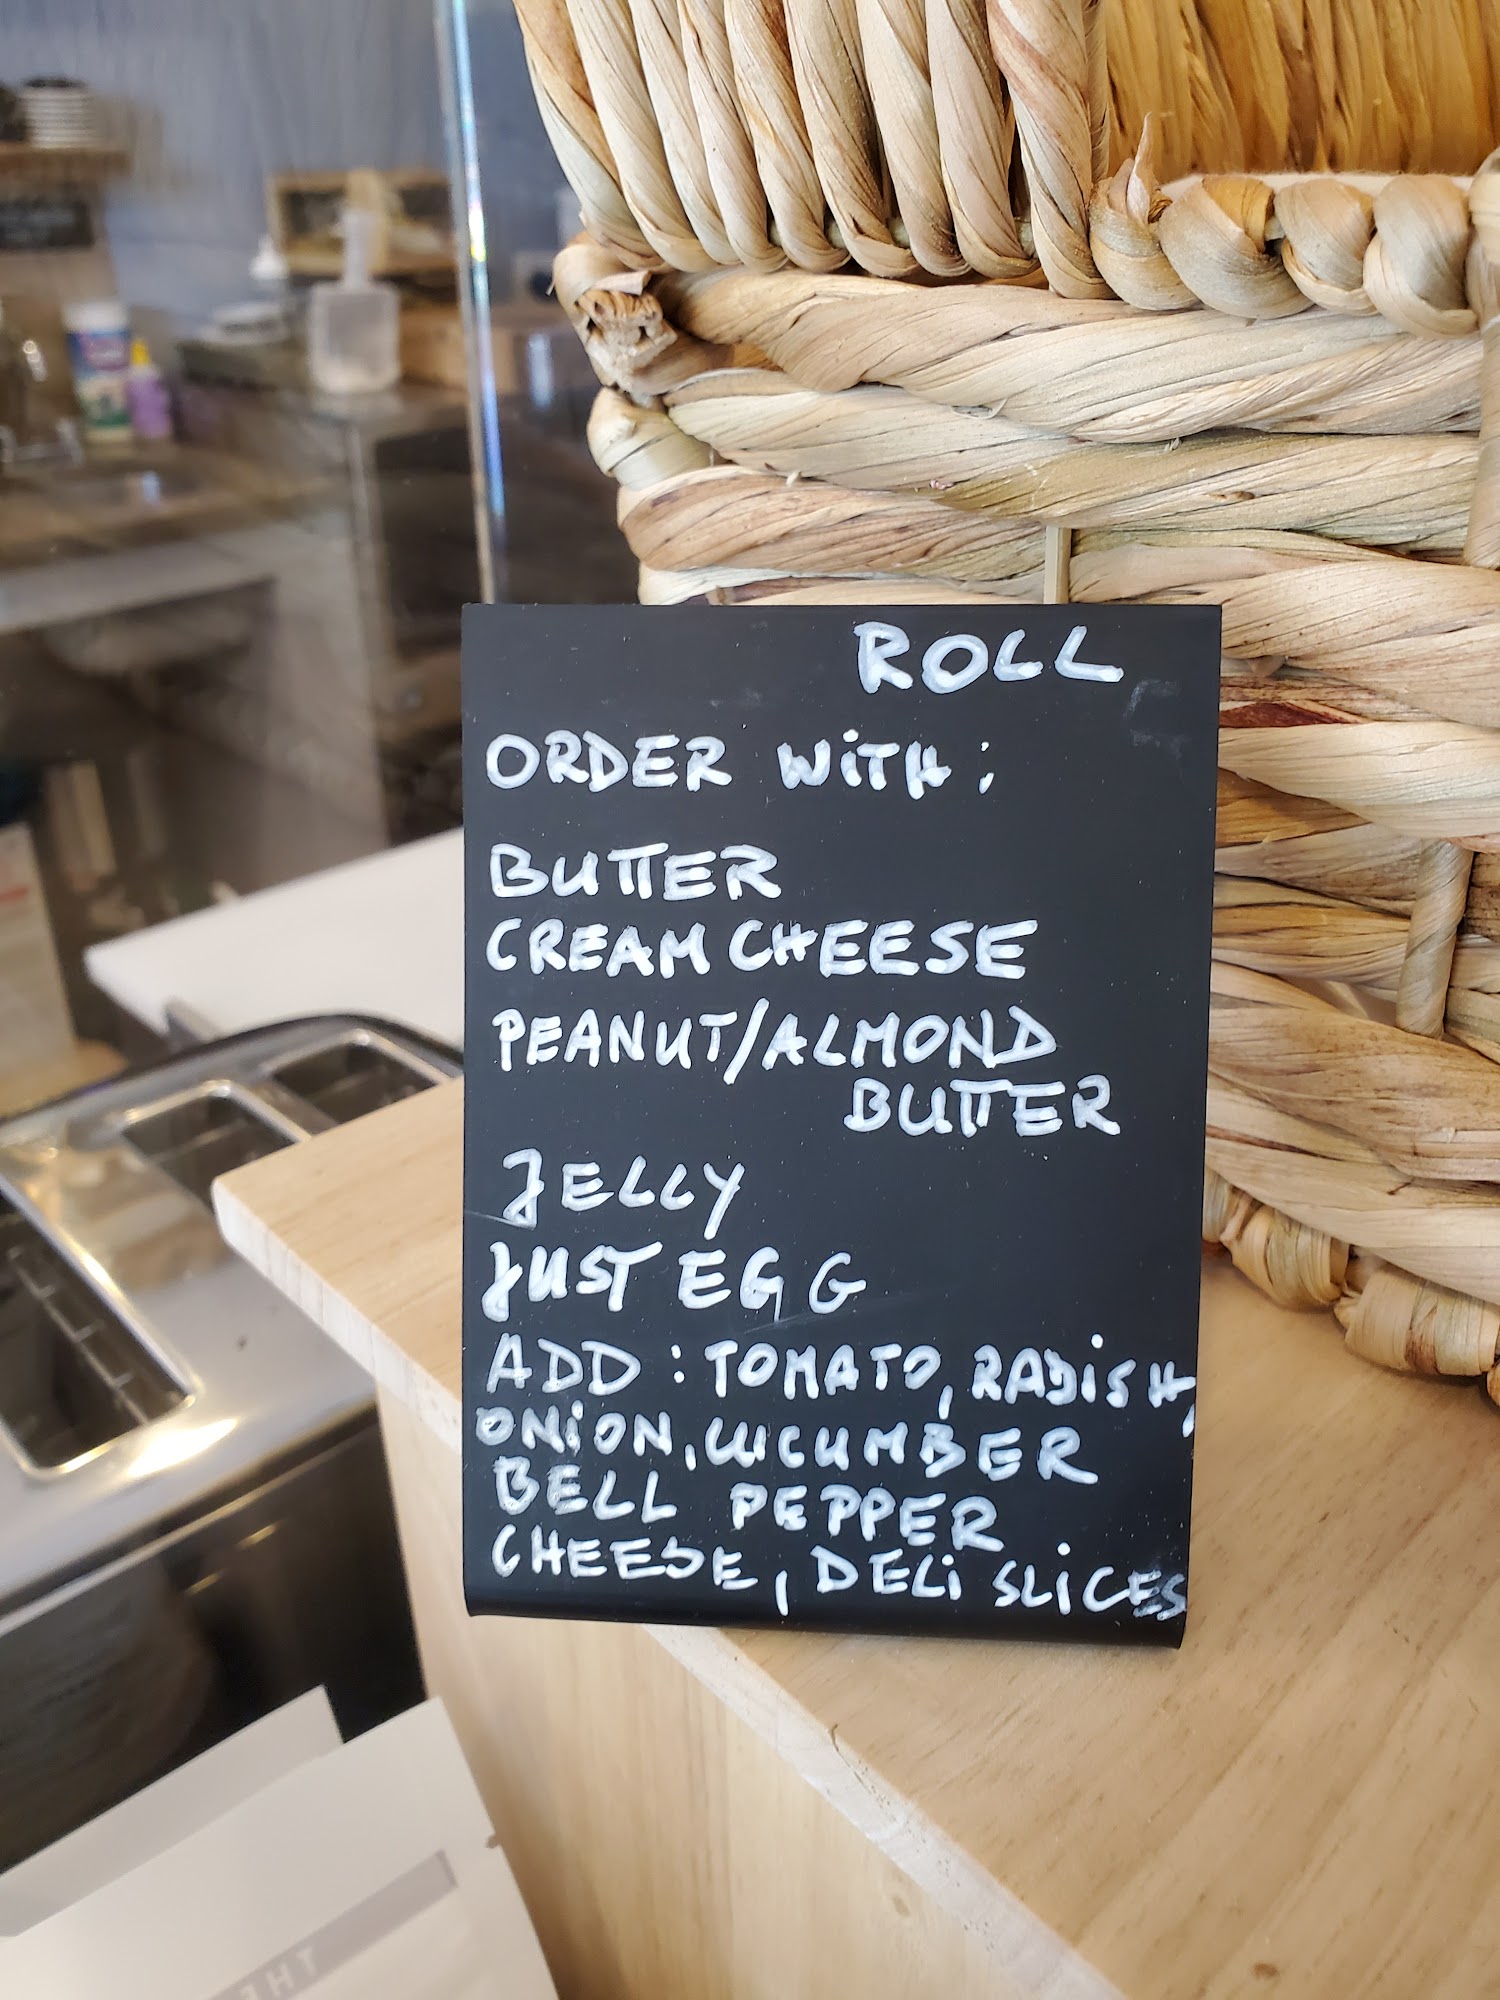 ROLL
ORDER WiTH:
BUTTER
CREAM CHEESE
PEANUT/ALMOND
BUTTER
JELLY
JUST EGG
ADD: TOMATO, RADiSH,
ONiON, CUCUMBER
BELL PEPPER
CHEESE, DELi SLiCES